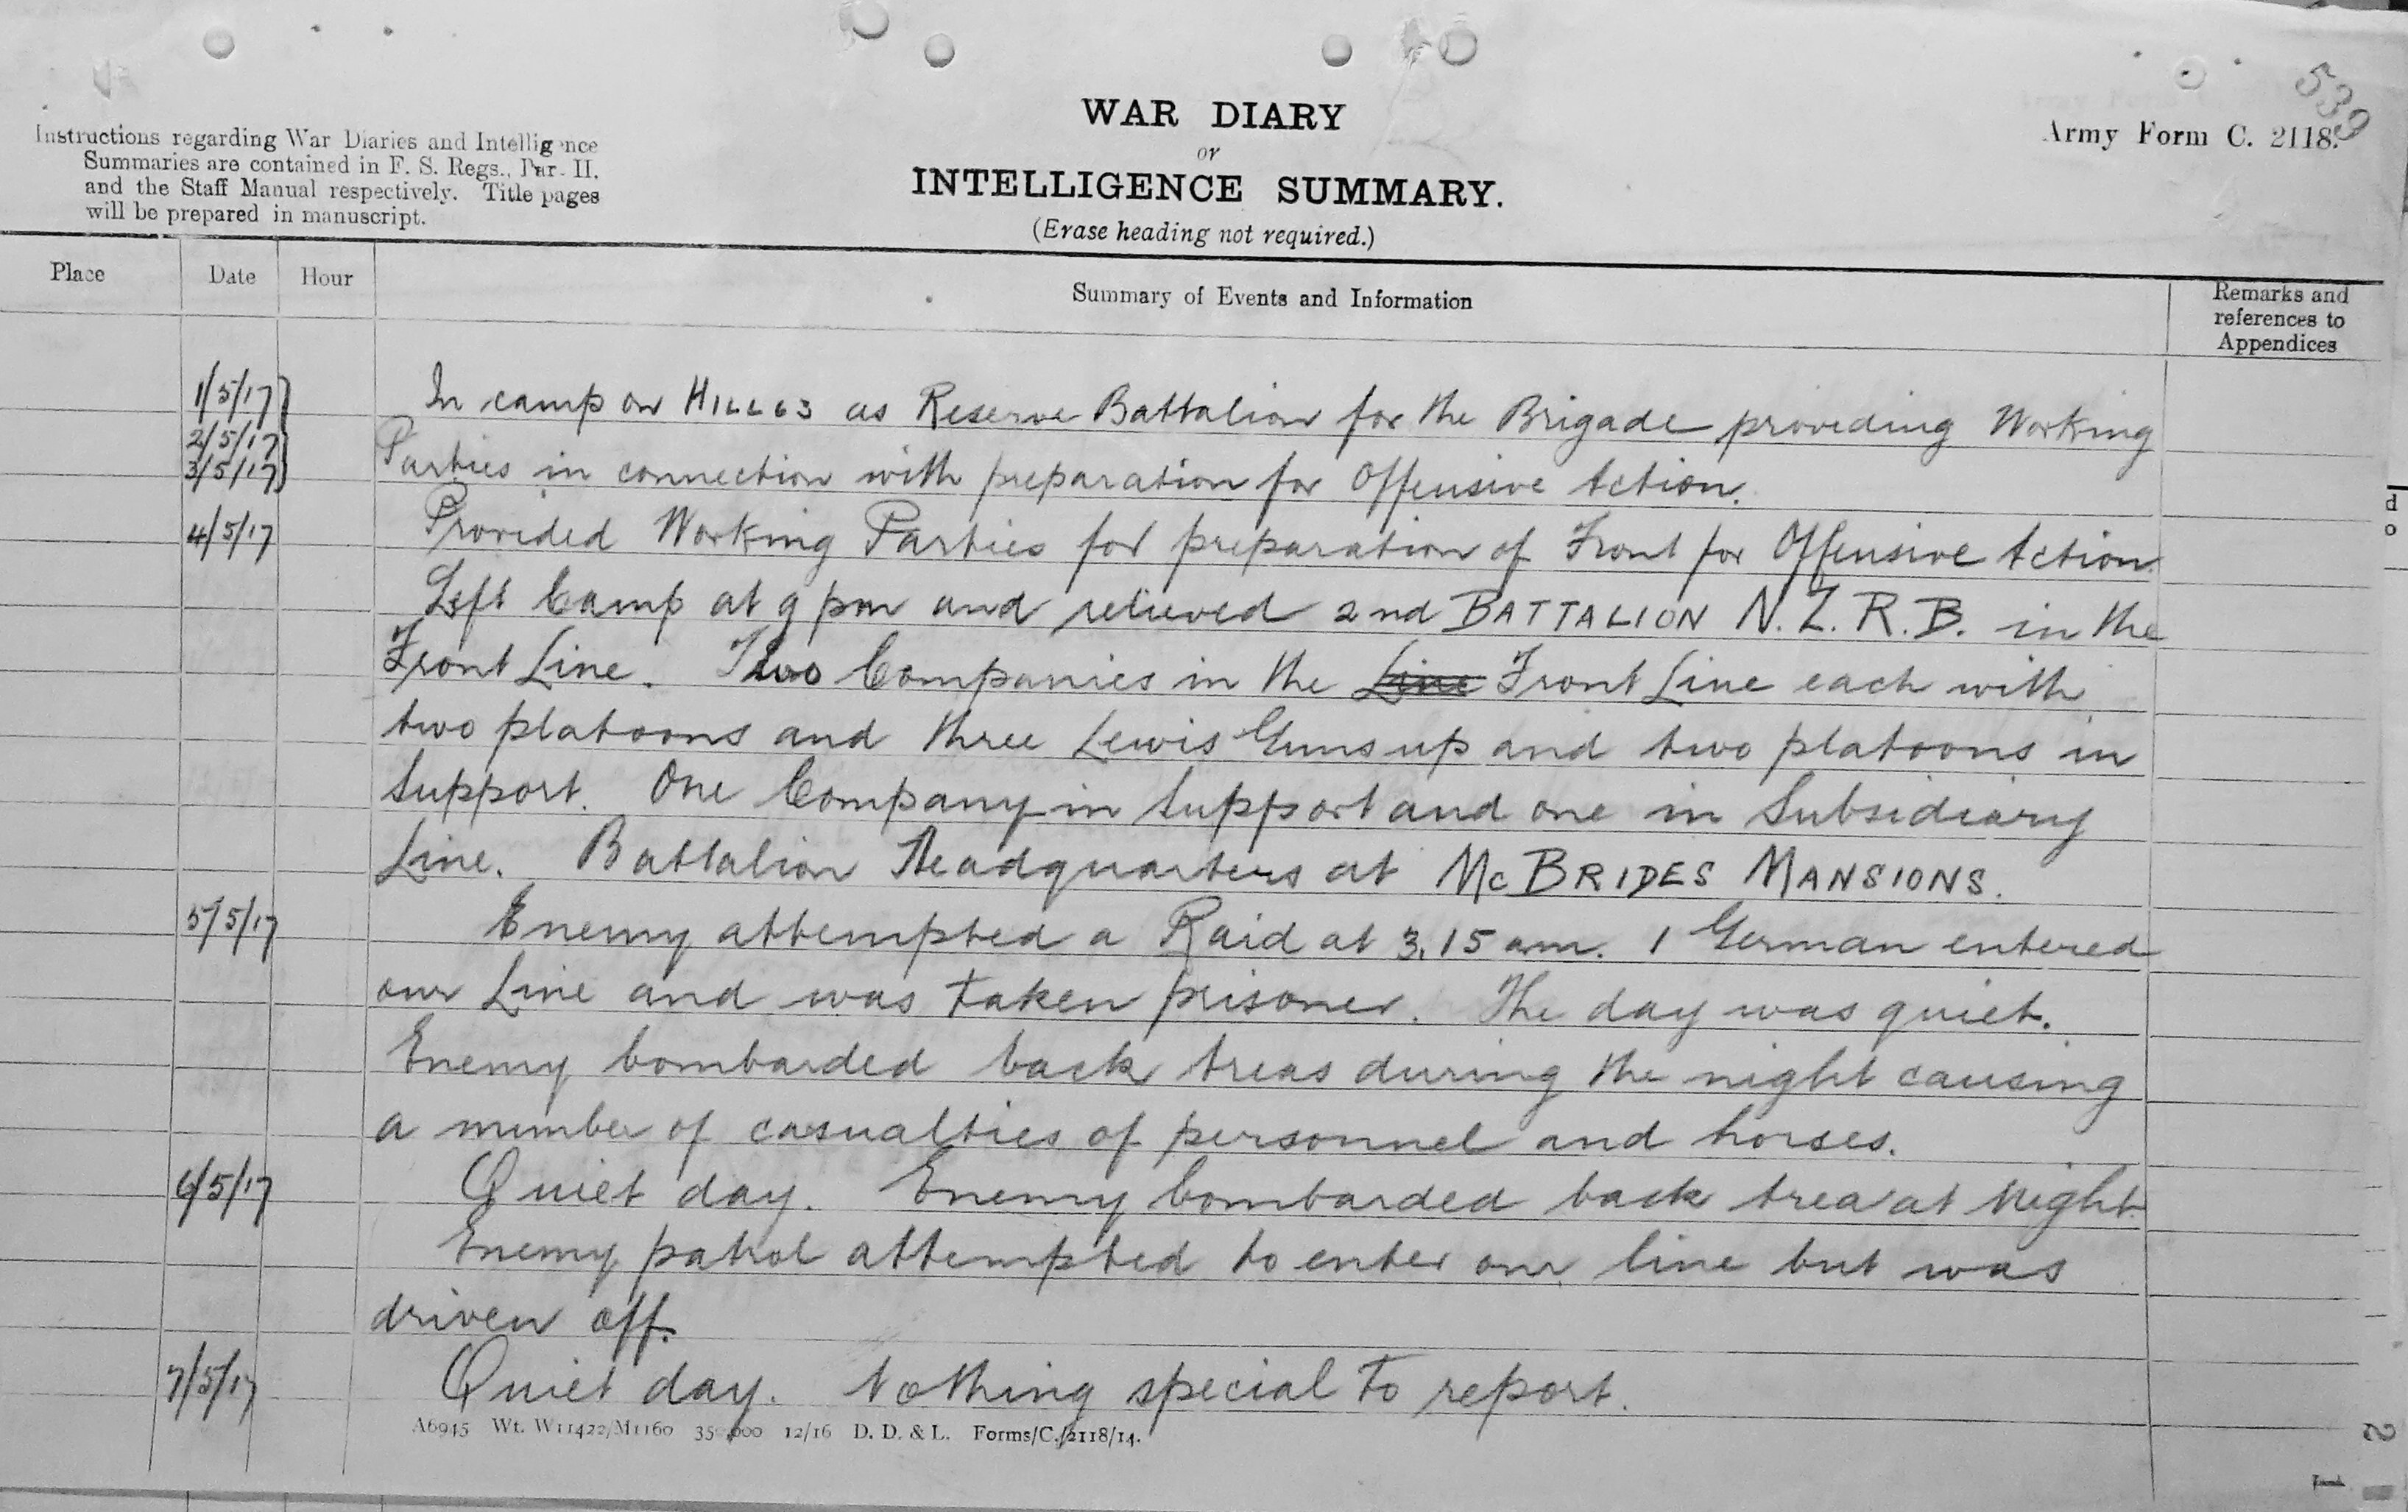 539
Army Form C. 2118.
WAR DIARY
or
INTELLIGENCE SUMMARY.
(Erase heading not required.)
Instructions regarding War Diaries and Intelligence
Summaries are contained in F. S. Regs., Par. II.
and the Staff Manual respectively. Title pages
will be prepared in manuscript.
Place Date Hour Summary of Events and Information Remarks and
references to
Appendices
1/5/17 In camp on HILL 63 as Reserve Battalion for the Brigade providing Working
2/5/17
3/5/17 Parties in connection with preparation for Offensive Action.
4/5/17 Provided Working Parties for preparation of Front for Offensive Action.
Left Camp at 9 pm and relieved 2nd BATTALION N.Z.R.B. in the
Front Line. Two Companies in the Line Front Line each with
two platoons and three Lewis Guns up and two platoons in
Support. One Company in Support and one in Subsidiary
Line. Battalion Headquarters at McBRIDES MANSIONS.
5/5/17 Enemy attempted a Raid at 3.15 am. 1 German entered
our Line and was taken prisoner. The day was quiet.
Enemy bombarded back Areas during the night causing
a number of casualties of personnel and horses.
6/5/17 Quiet day. Enemy bombarded back Area at Night.
Enemy patrol attempted to enter our line but was
driven off.
7/5/17 Quiet day. Nothing special to report.
A6945 Wt. W11422/M1160 350,000 12/16 D. D. & L. Forms/C./2118/14.
d
o
2